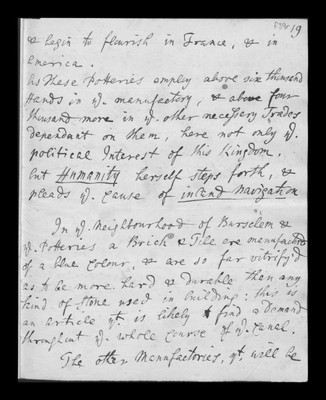 19
& begin to flourish in France, & in
America.
As these Potteries employ above six thousand
Hands in ye. manufactory, & above four
thousand more in ye. other necessary Trades
dependant on them, here not only ye.
political Interest of this Kingdom.
but Humanity herself steps forth, &
pleads ye. cause of inland Navigation
In ye. Neighbourhood of Burselem &
ye. Potteries a Brick & Tile are manufactured
of a blue colour, & are so far vitrify'd
as to be more hard & durable than any
kind of stone used in building: this is
an article yt. is likely to find a demand
throughout ye. whole course of ye. Canal.
The other Manufactories, yt. will be